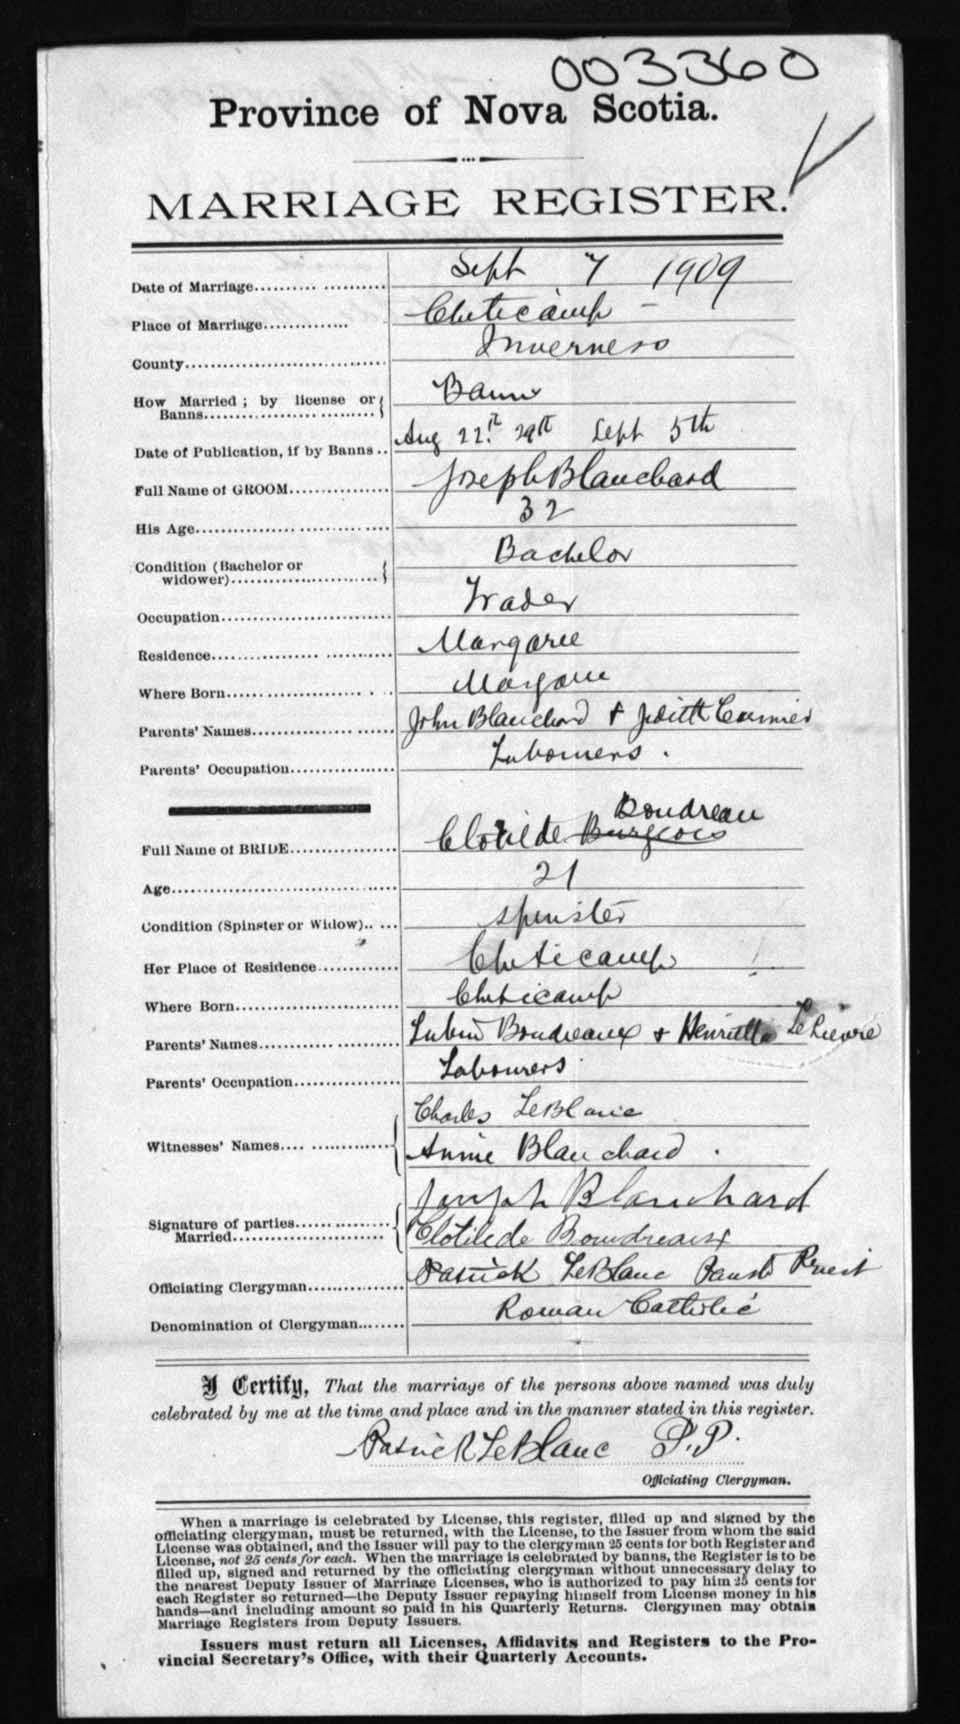 003360
Province of Nova Scotia.
MARRIAGE REGISTER.
Date of Marriage Sept 7 1909
Place of Marriage Cheticamp -
County Inverness
How Married ; by license or
Banns Banns
Date of Publication, if by Banns Aug 22th 29th Sept 5th
Full Name of GROOM Joseph Blanchard
His Age 32
Condition (Bachelor or
widower) Bachelor
Occupation Trader
Residence Margaree
Where Born Margaree
Parents' Names John Blanchard + Judith Cormier
Parents' Occupation Labourers .
Boudreau
Full Name of BRIDE Clotilde Burgeois
Age 21
Condition (Spinster or Widow) spinster
Her Place of Residence Cheticamp
Where Born Cheticamp
Parents' Names Lubin Boudreaux + Henriette LeLievre
Parents' Occupation Labourers
Charles LeBlanc
Witnesses' Names
Annie Blanchard .
Joseph Blanchard
Signature of parties
Married Clotilde Boudreaux
Officiating Clergyman Patrick LeBlanc Parish Priest
Denomination of Clergyman Roman Catholic
I Certify, That the marriage of the persons above named was duly
celebrated by me at the time and place and in the manner stated in this register.
Patrick LeBlanc P.P.
Officiating Clergyman.
When a marriage is celebrated by License, this register, filled up and signed by the
officiating clergyman, must be returned, with the License, to the Issuer from whom the said
License was obtained, and the Issuer will pay to the clergyman 25 cents for both Register and
License, not 25 cents for each. When the marriage is celebrated by banns, the Register is to be
filled up, signed and returned by the officiating clergyman without unnecessary delay to
the nearest Deputy Issuer of Marriage Licenses, who is authorized to pay him 25 cents for
each Register so returned—the Deputy Issuer repaying himself from License money in his
hands—and including amount so paid in his Quarterly Returns. Clergymen may obtain
Marriage Registers from Deputy Issuers.
Issuers must return all Licenses, Affidavits and Registers to the Pro-
vincial Secretary's Office, with their Quarterly Accounts.